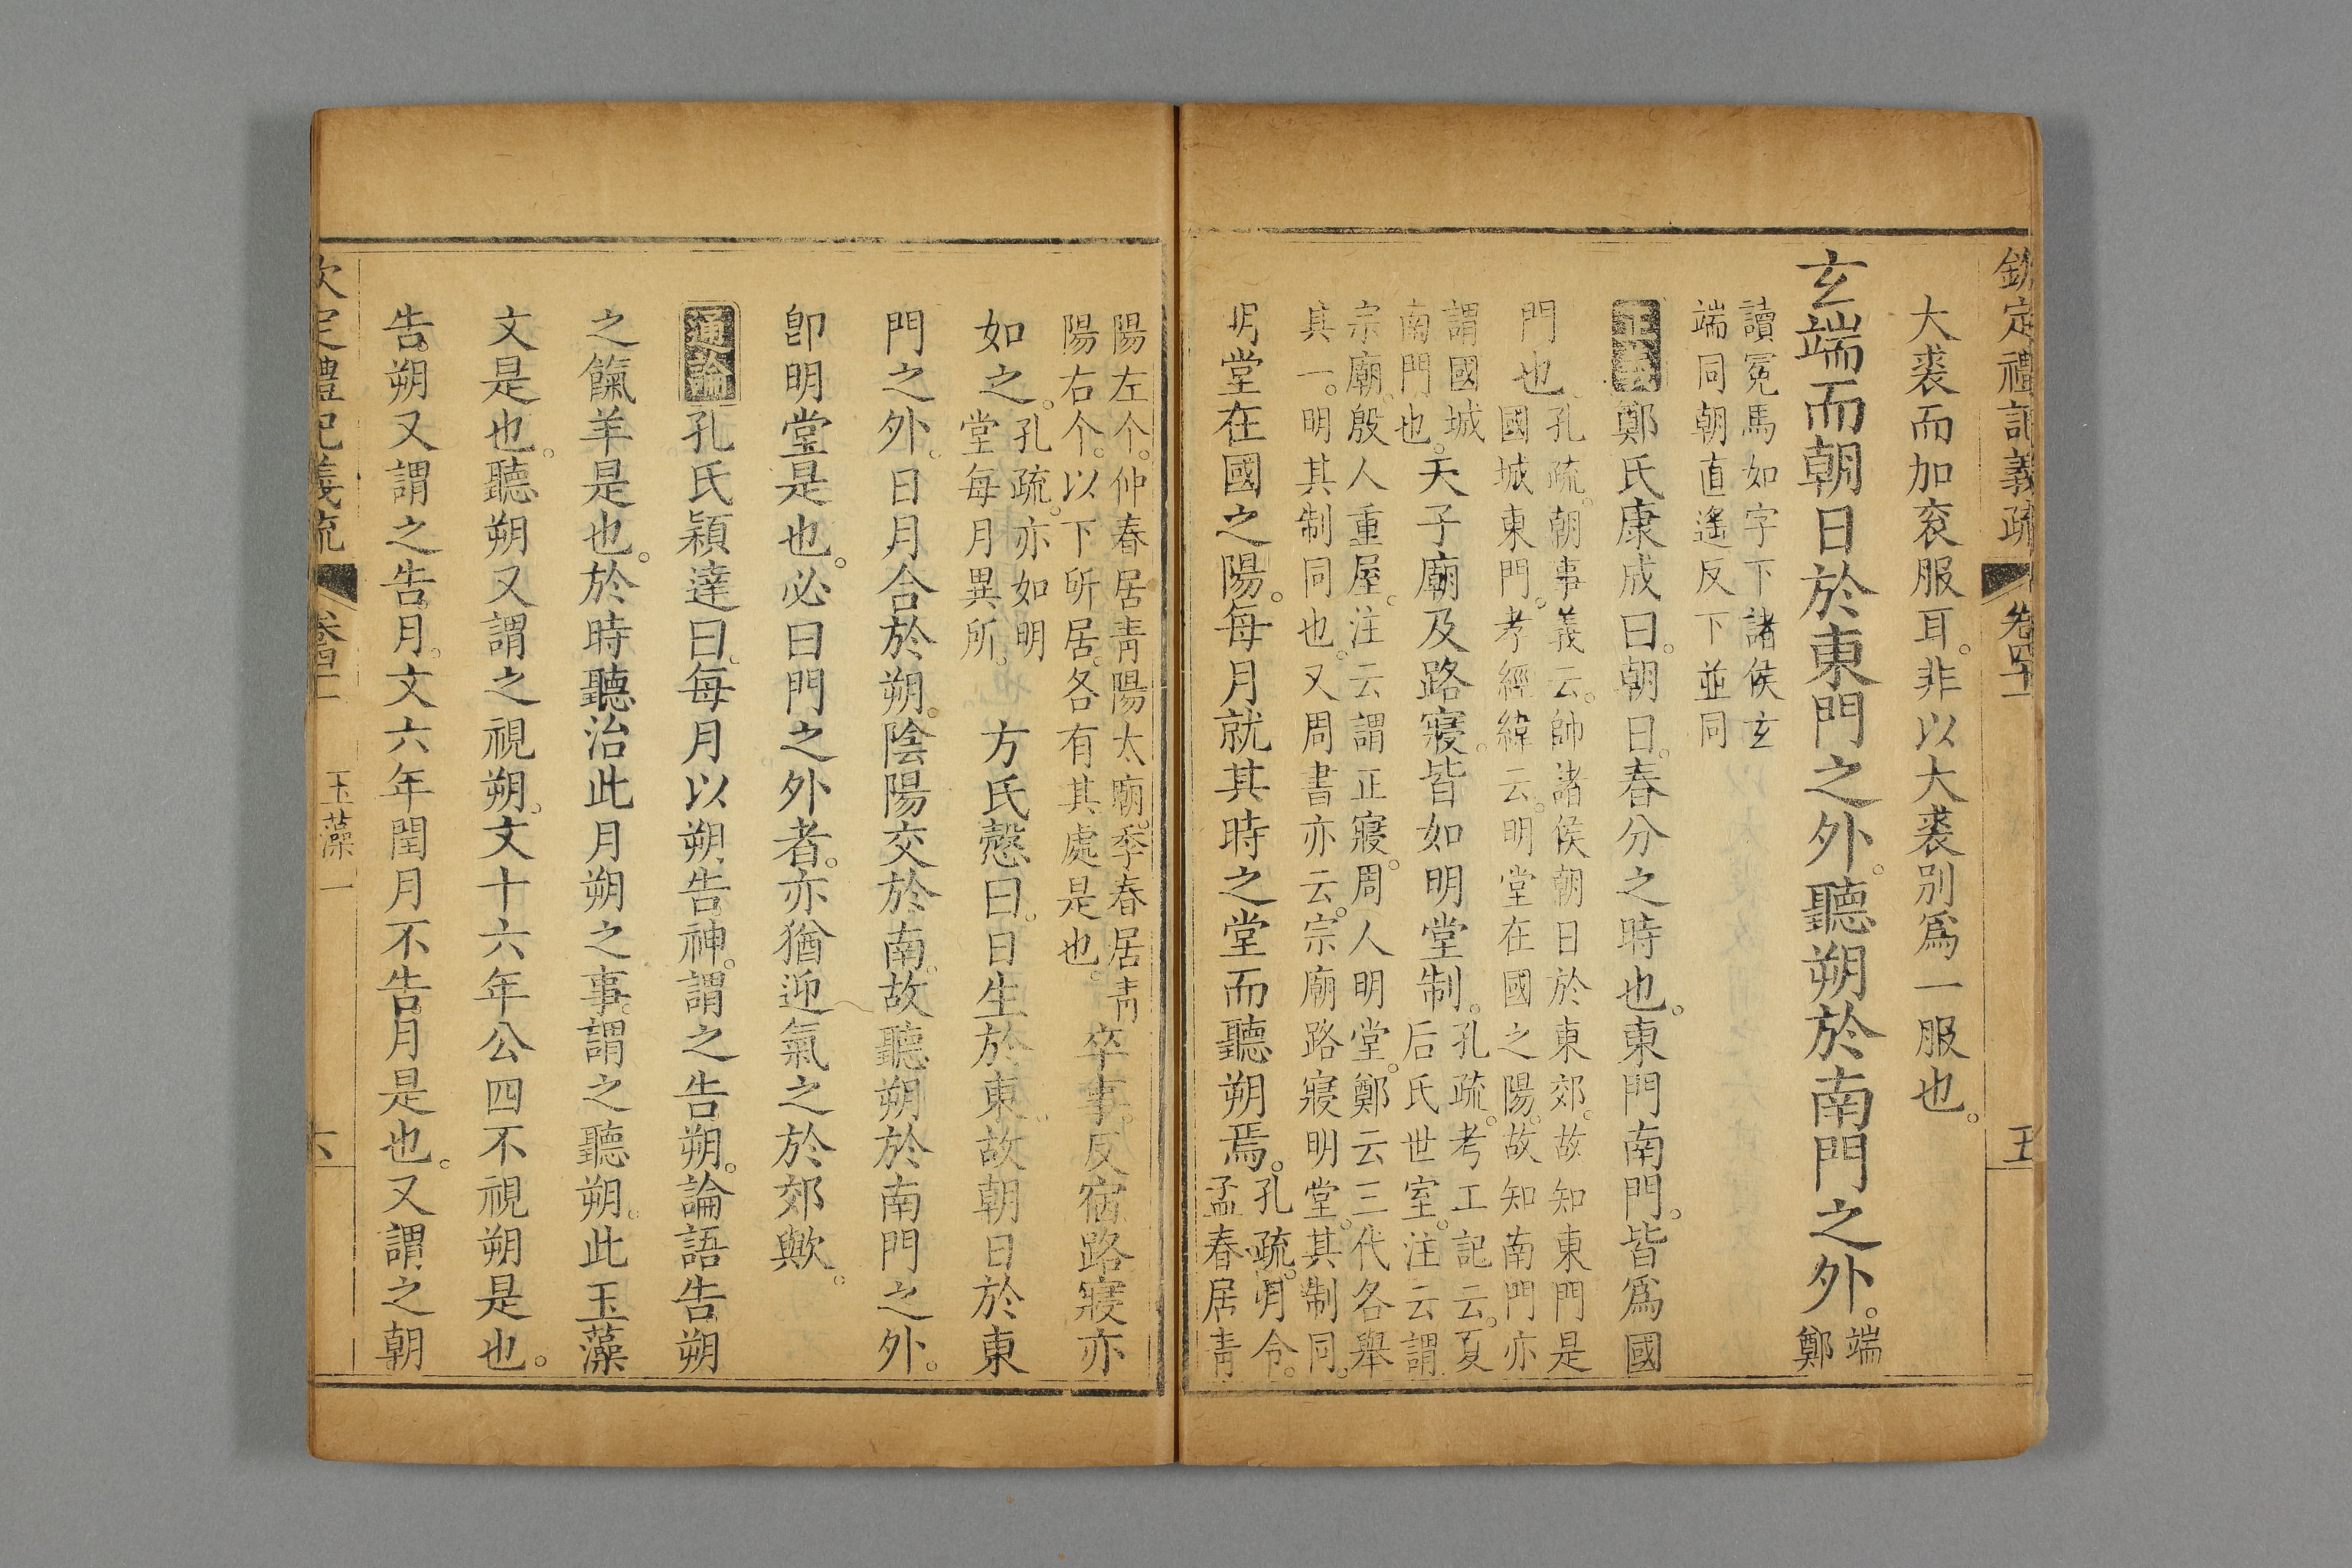 欽定禮記義疏 卷四十一 五
大裘而加衮服耳。非以大裘別爲一服也。
玄端而朝日於東門之外。聽朔於南門之外。端鄭
讀冕馬如字下諸侯玄
端同朝直遙反下並同
正義 鄭氏康成曰。朝日。春分之時也。東門南門。皆爲國
門也。孔疏。朝事義云。帥諸侯朝日於東郊。故知東門是
國城東門。考經緯云。明堂在國之陽。故知南門亦
謂國城
南門也。天子廟及路寢。皆如明堂制。孔疏。考工記云。夏
后氏世室。注云謂
宗廟。殷人重屋。注云謂正寢。周人明堂。鄭云三代各舉
其一。明其制同也。又周書亦云。宗廟路寢明堂。其制同。
明堂在國之陽。每月就其時之堂而聽朔焉。孔疏。月令。
孟春居青
陽左个。仲春居青陽太廟。季春居青
陽右个。以下所居。各有其處是也。卒事。反宿路寢亦
如之。孔疏。亦如明
堂每月異所。 方氏慤曰。日生於東。故朝日於東
門之外。日月合於朔。陰陽交於南。故聽朔於南門之外。
卽明堂是也。必曰門之外者。亦猶迎氣之於郊歟。
通論 孔氏穎達曰。每月以朔告神。謂之告朔。論語告朔
之餼羊是也。於時聽治此月朔之事。謂之聽朔。此玉藻
文是也。聽朔又謂之視朔。文十六年公四不視朔是也。
告朔又謂之告月。文六年閏月不告月是也。又謂之朝
欽定禮記義疏 卷四十一 玉藻一 六